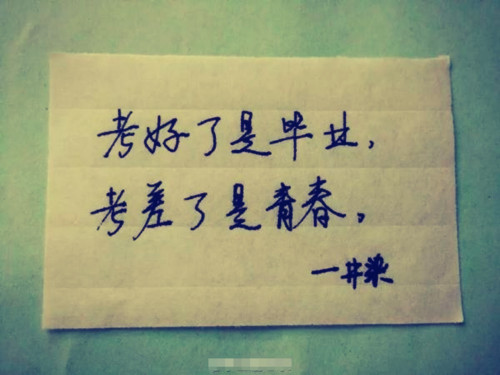 考好了是毕业,
考差了是青春。
一井染